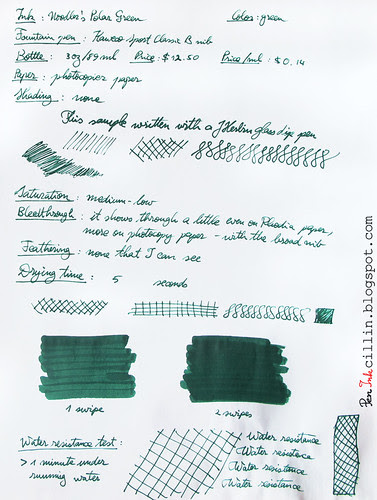 Ink : Noodler's Polar Green Color: green
Fountain pen : Kaweco Sport Classic B nib
Bottle : 3oz/89ml Price: $12.50 Price/ml : $0.14
Paper : photocopier paper
Shading : none
This sample written with a J Herbin glass dip pen
Saturation : medium-low
Bleedthrough : it shows through a little even on Rhodia paper,
more on photocopy paper - with the broad nib
Feathering : none that I can see
Drying time : 5 seconds
1 swipe
2 swipes
Water resistance test :
> 1 minute under
running water
Water resistance
Water resistance
Water resistance
Water resistance
Pen Ink cillin.blogspot.com